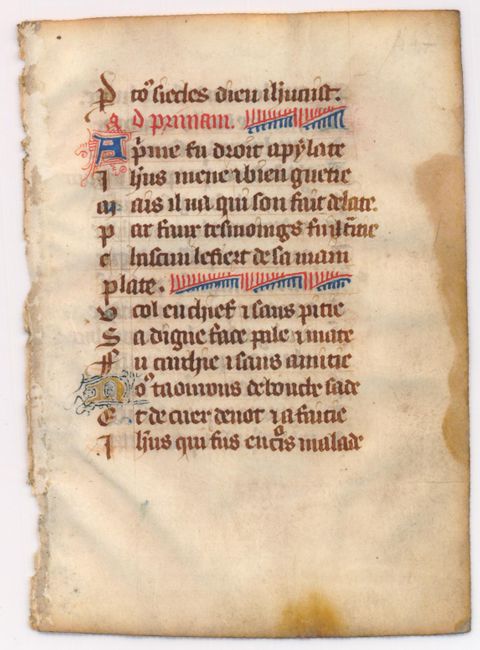 P toꝰ siecles dieu ihucrist.
Ad primam.
A pme fu droit a pylate
I hũs mene ⁊ bien guetie
M ais il na qui son fait delate
P ar faux tesmoings fu
C hascun le fiert de sa main
plate.
V col en chief ⁊ sans pitie
S a digne face pale ⁊ mate
F u crachie ⁊ sans amitie
N oꝰ taourons de bouche sade
E t de cuer denot ⁊ a faitie
I hũs qui fus en malade